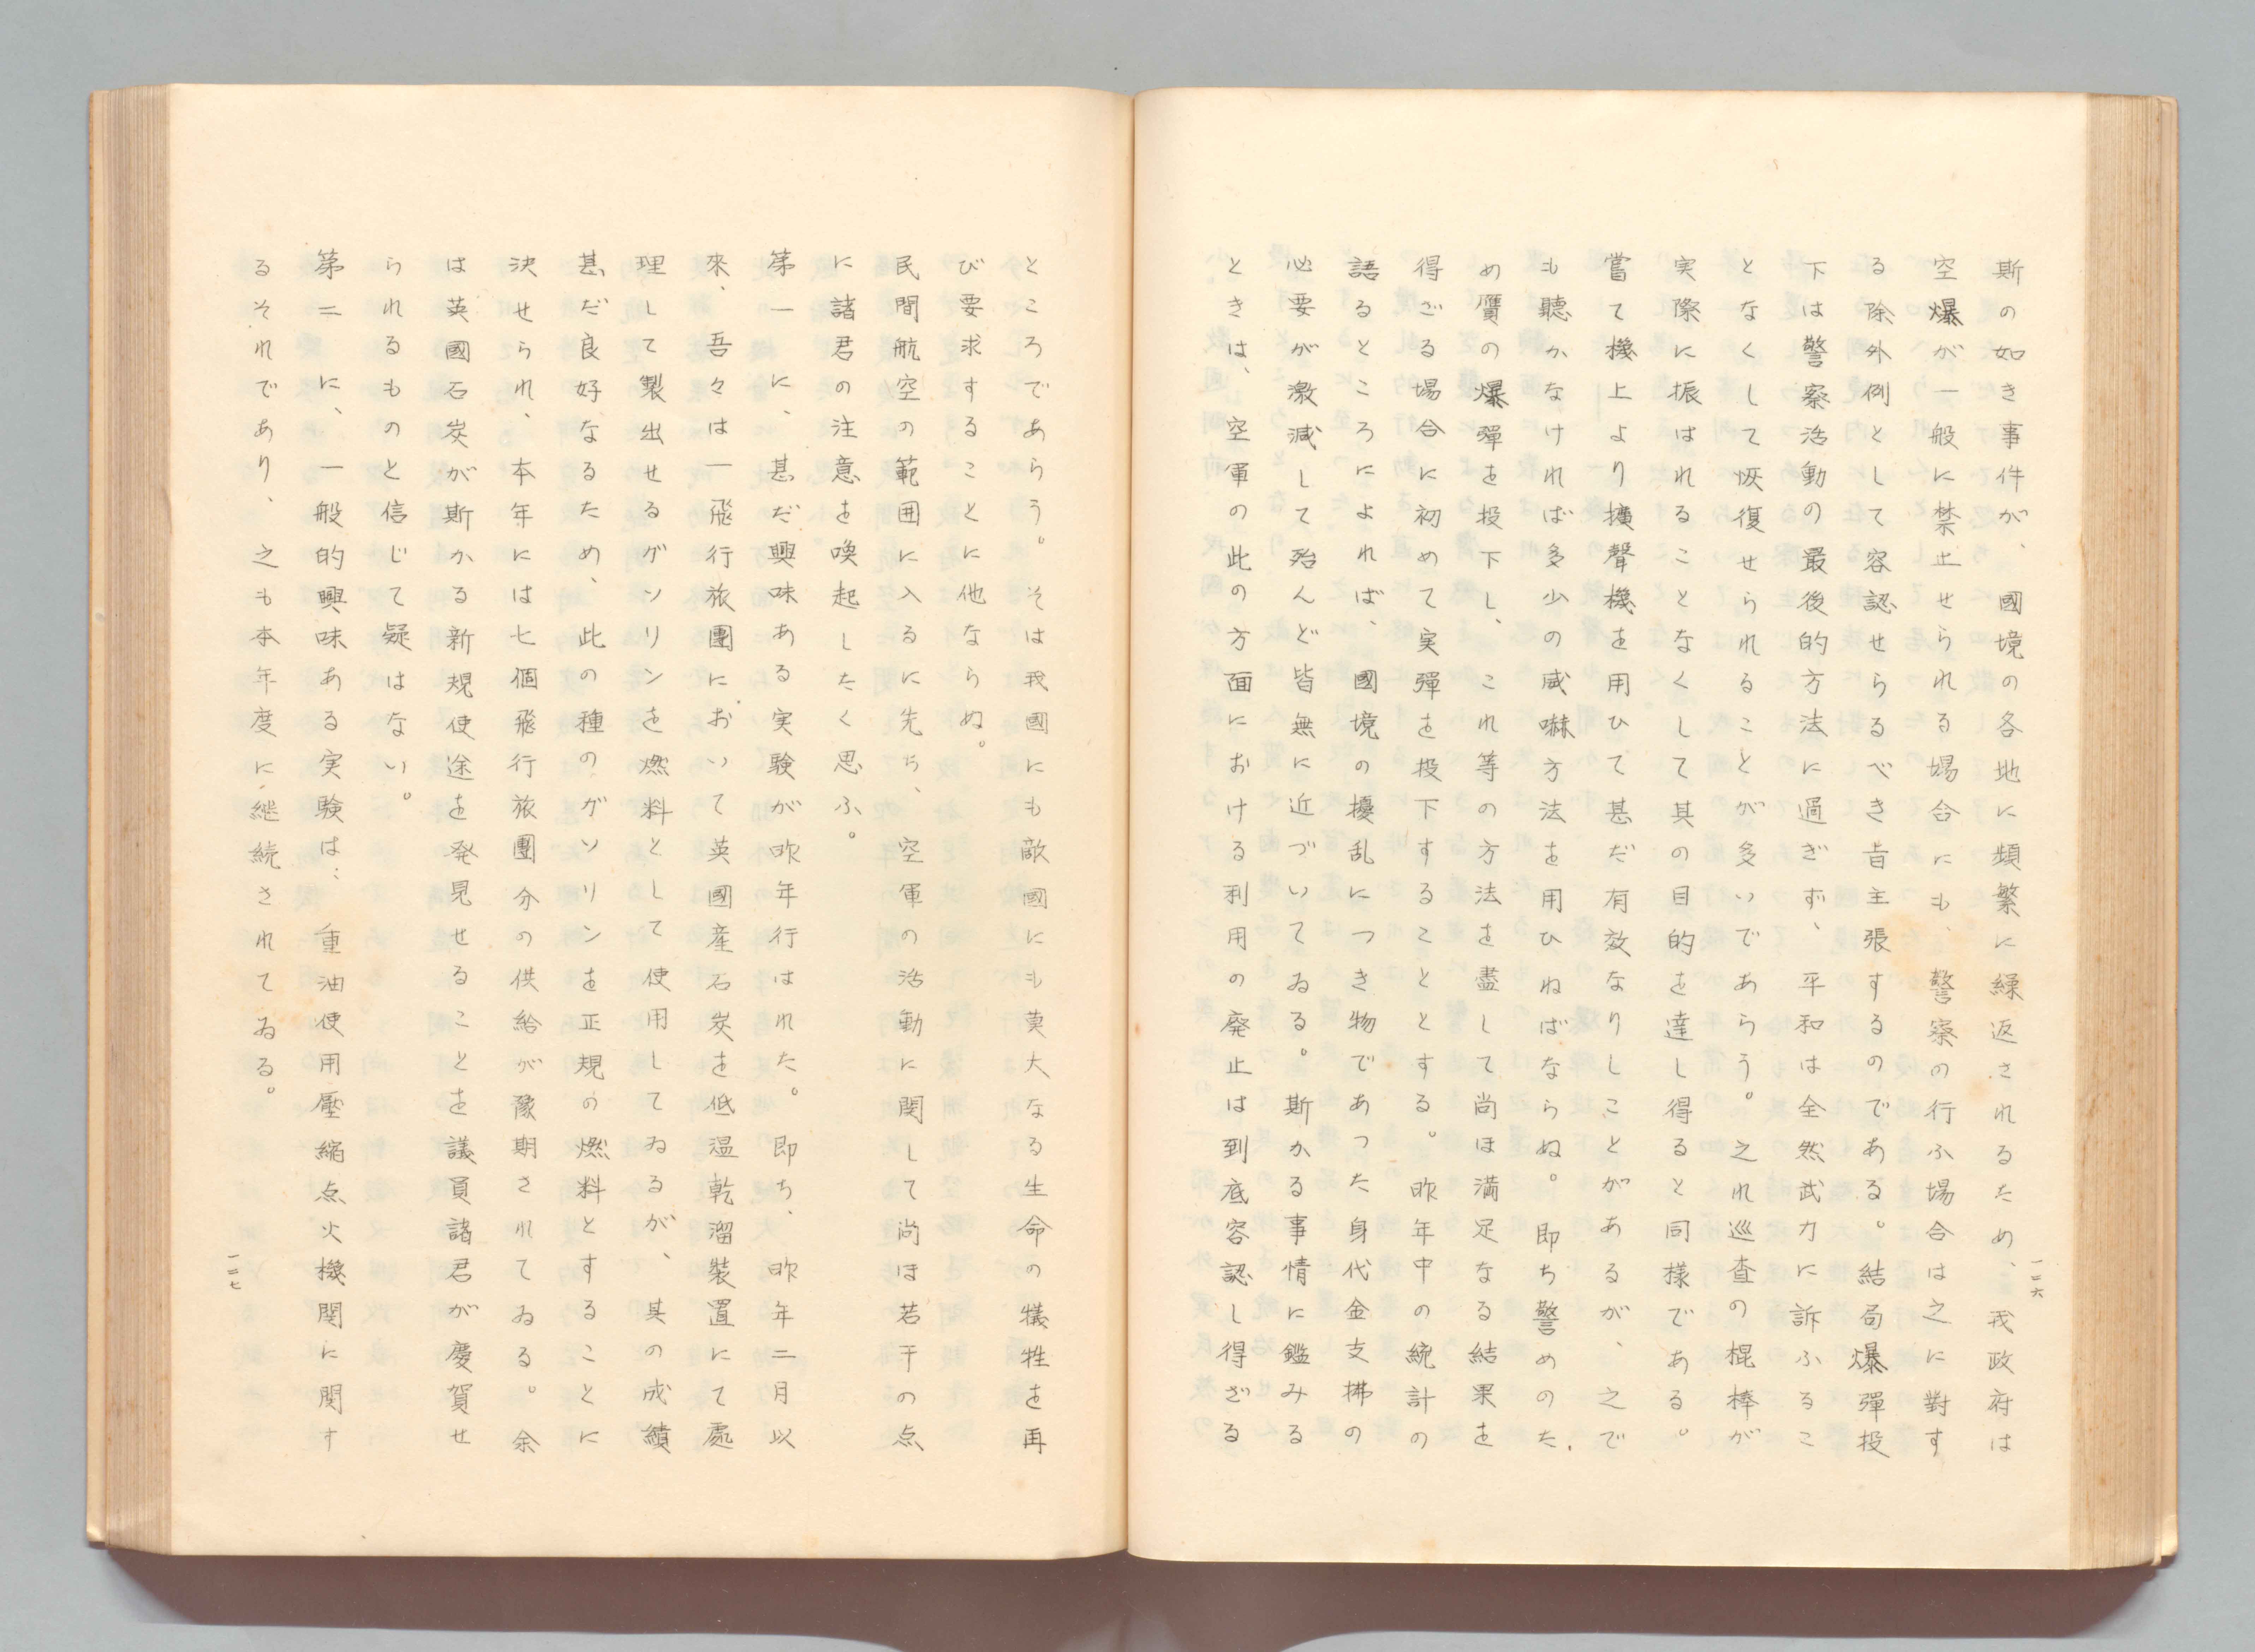 斯の如き事件が、國境の各地に頻繁に繰返されるため、我政府は
空爆が一般に禁止せられる場合にも、警察の行ふ場合は之に對す
る除外例として容認せらるべき旨主張するのである。結局爆彈投
下は警察活動の最後的方法に過ぎず、平和は全然武力に訴ふるこ
となくして恢復せられることが多いであらう。之れ巡査の棍棒が
実際に振はれることなくして其の目的を達し得ると同様である。
嘗て機上より擴聲機を用ひて甚だ有效なりしことがあるが、之で
も聽かなければ多少の威嚇方法を用ひねばならぬ。即ち警めのた
め贋の爆彈を投下し、これ等の方法を盡して尚ほ満足なる結果を
得ざる場合に初めて実彈を投下することとする。昨年中の統計の
語るところによれば、國境の擾乱につき物であつた身代金支拂の
必要が激減して殆んど皆無に近づいてゐる。斯かる事情に鑑みる
ときは、空軍の此の方面における利用の廃止は到底容認し得ざる
一二六
ところであらう。そは我國にも敵國にも莫大なる生命の犠牲を再
び要求することに他ならぬ。
民間航空の範囲に入るに先ち、空軍の活動に関して尚ほ若干の点
に諸君の注意を喚起したく思ふ。
第一に、甚だ興味ある実験が昨年行はれた。即ち、昨年二月以
來、吾々は一飛行旅團において英國産石炭を低温乾溜装置にて處
理して製出せるガソリンを燃料として使用してゐるが、其の成績
甚だ良好なるため、此の種のガソリンを正規の燃料とすることに
決せられ、本年には七個飛行旅團分の供給が豫期されてゐる。余
は英國石炭が斯かる新規使途を発見せることを議員諸君が慶賀せ
られるものと信じて疑はない。
第二に、一般的興味ある実験は、重油使用壓縮点火機関に関す
るそれであり、之も本年度に継続されてゐる。
一二七